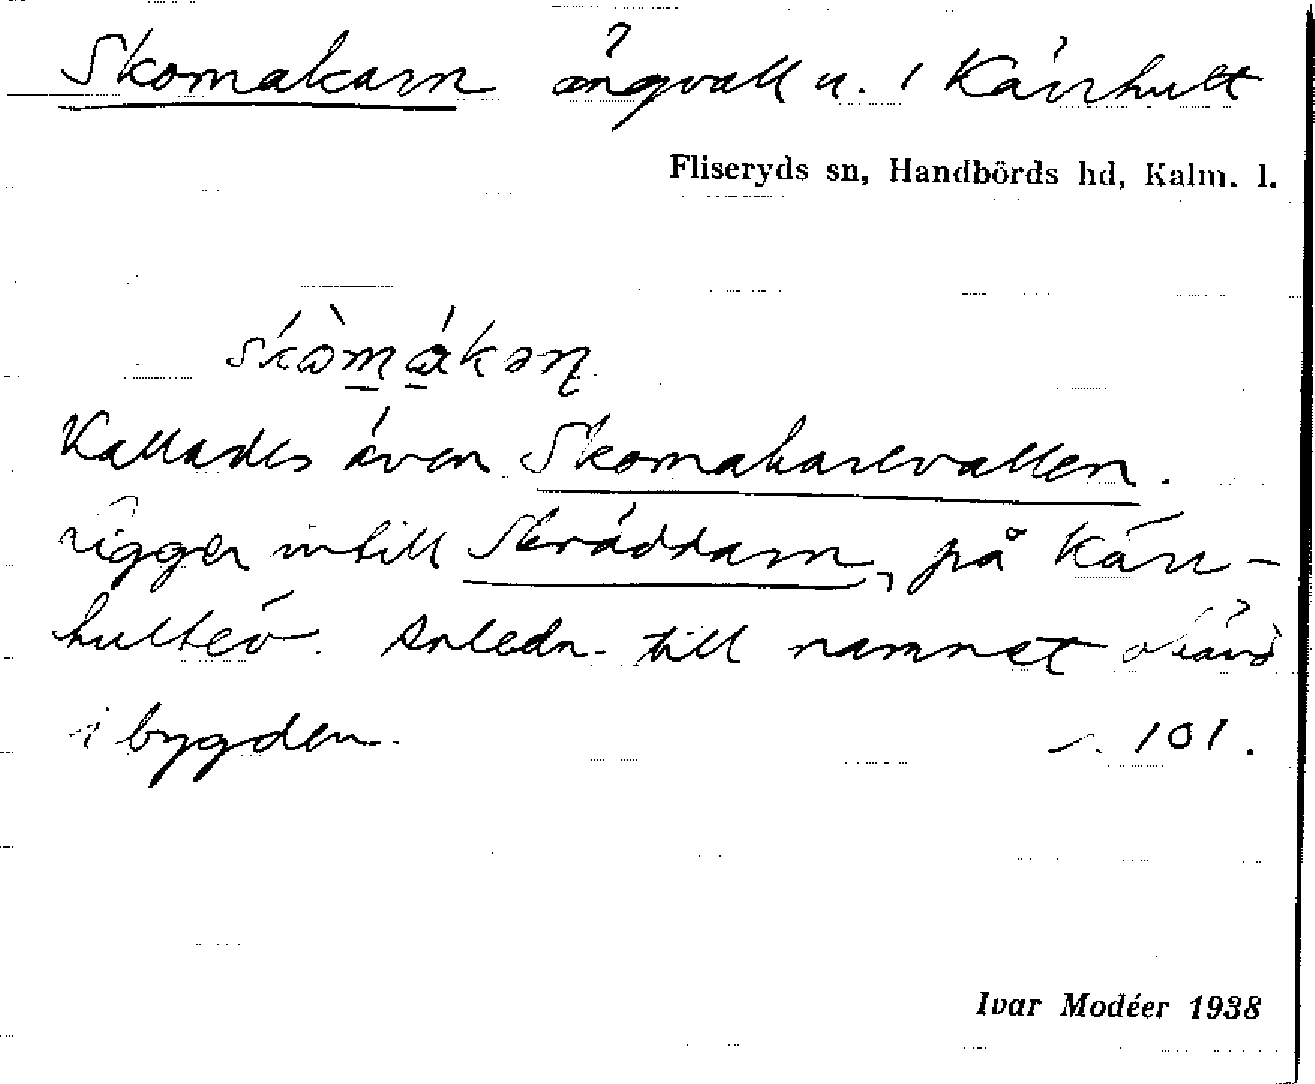 Skomakarn ängvall u. i Kärrhult
Fliseryds sn, Handbörds hd, Kalm. l.
skòmákəɳ.
Kallades även Skomakarevallen.
Ligger intill Skräddarn, på Kärr-
hulteö. Anledn. till namnet okänd
i bygden. s. 101.
Ivar Modéer 1938